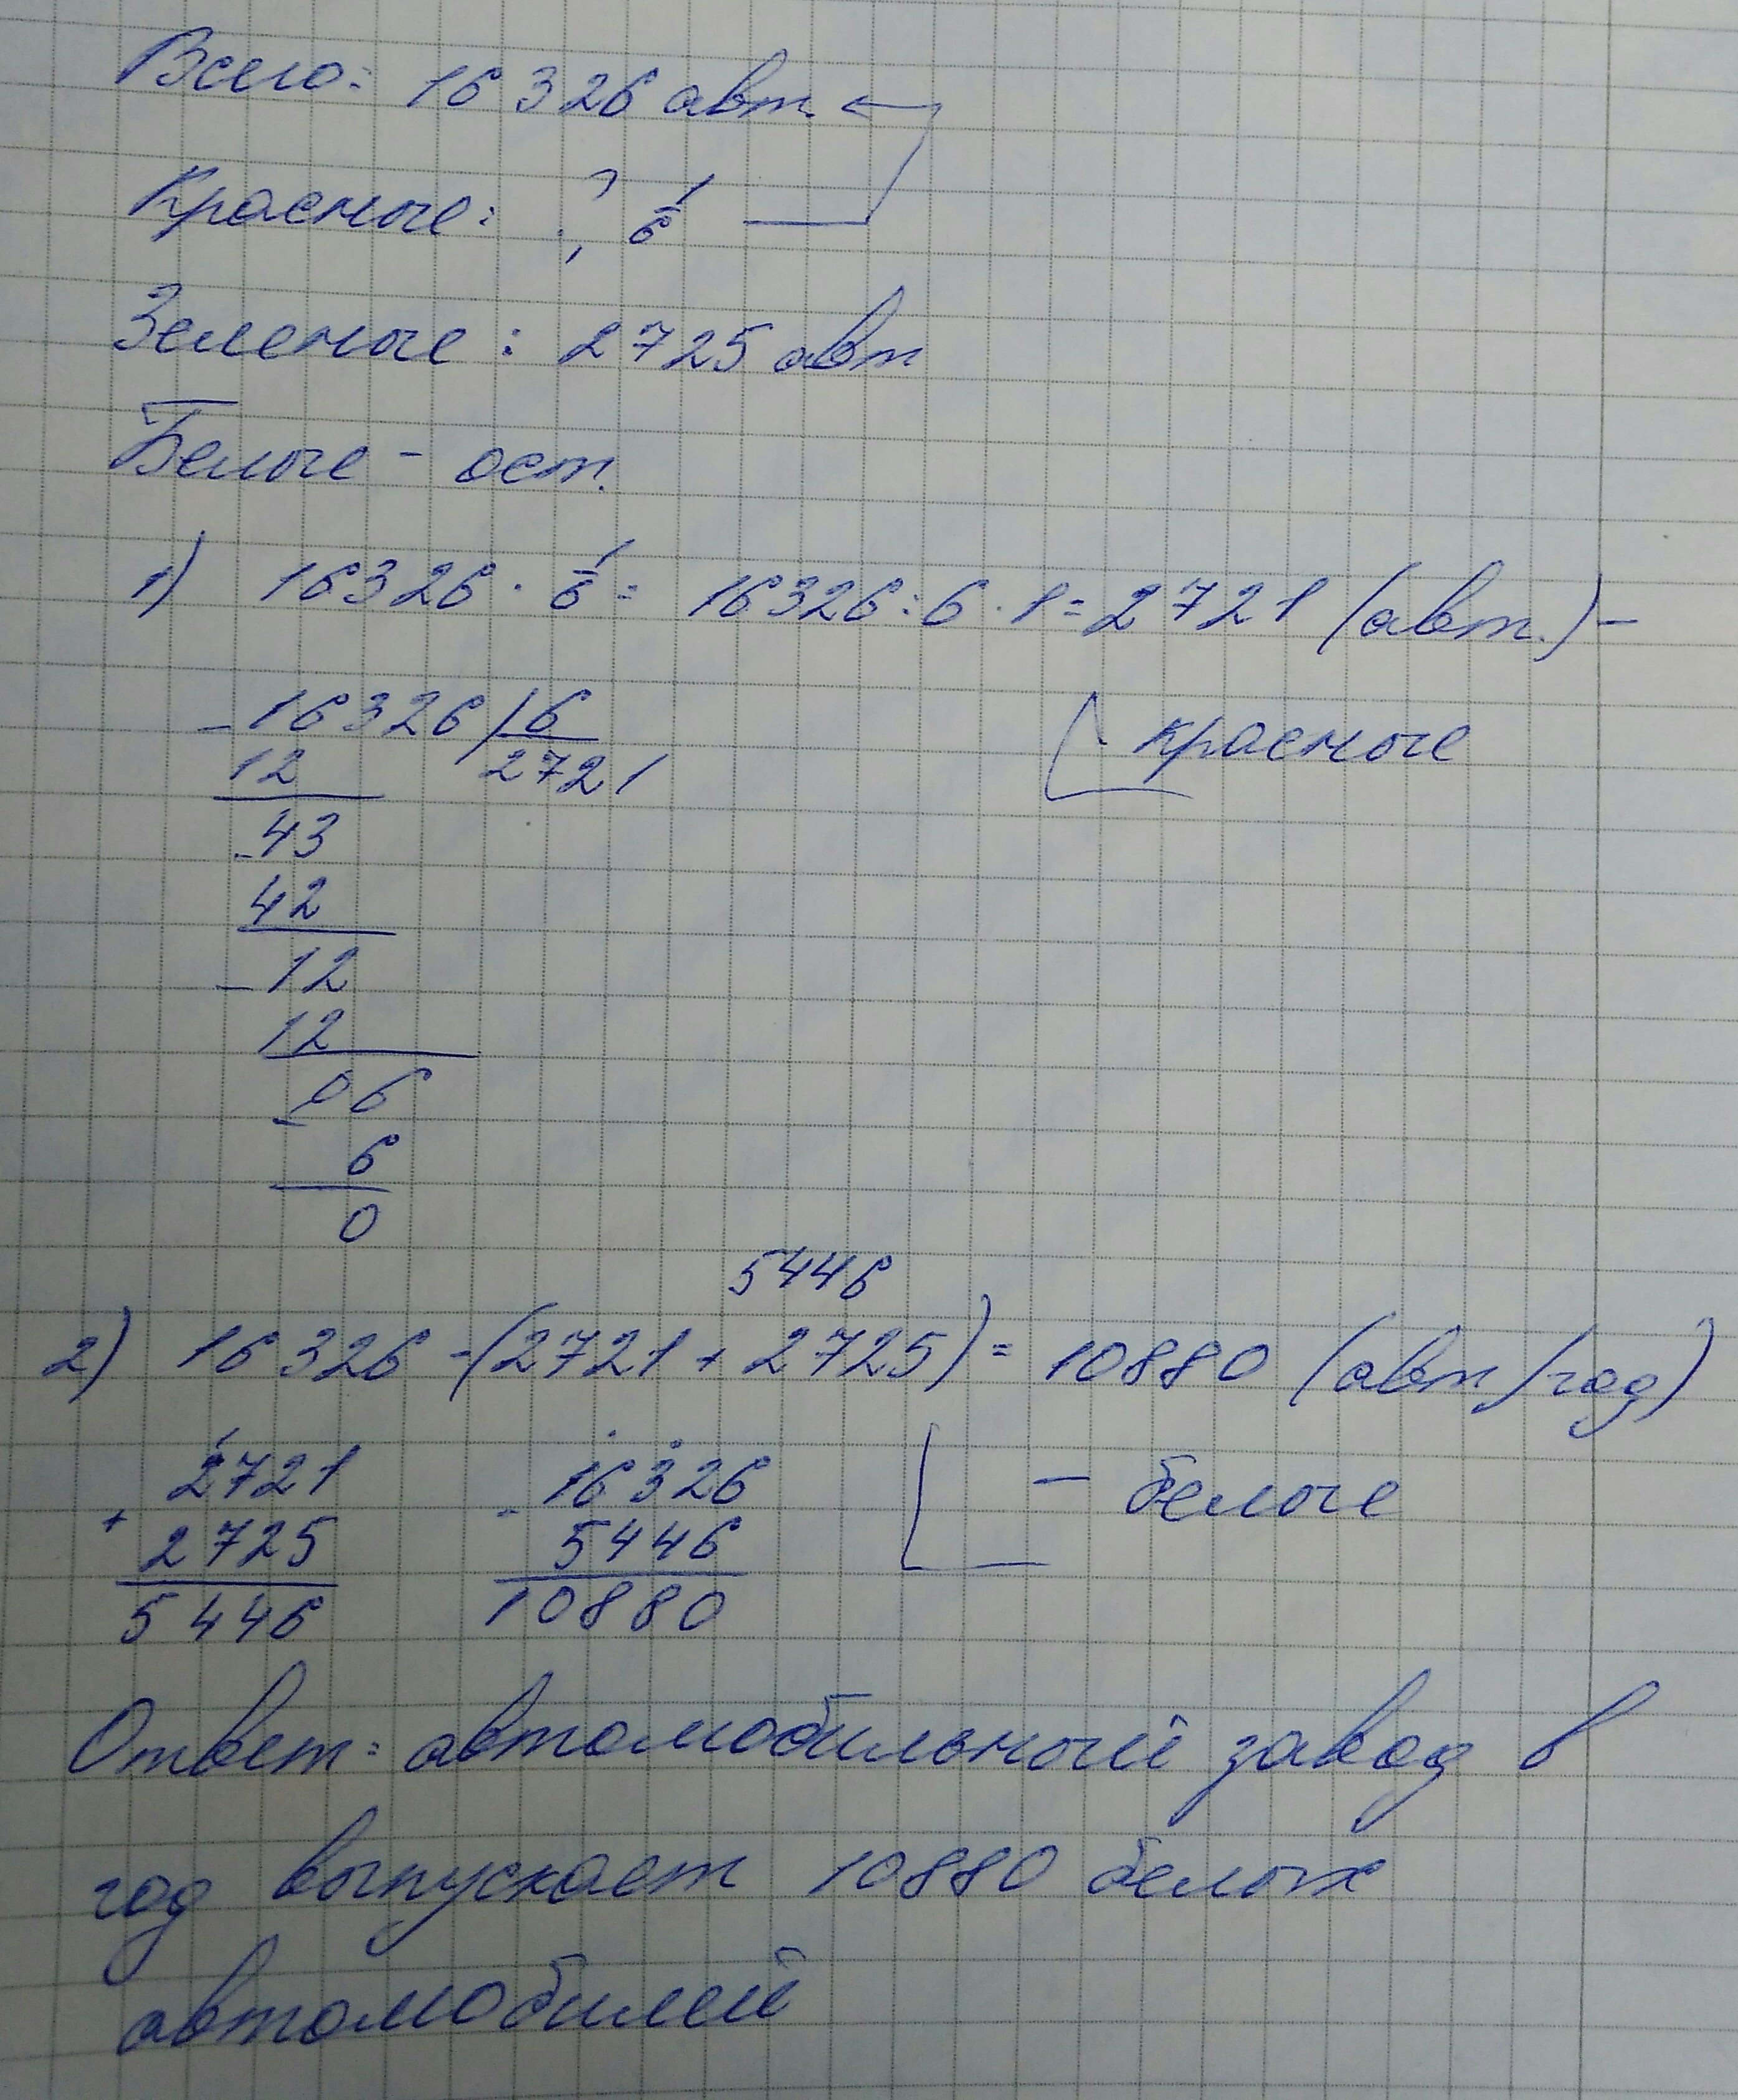 Всего: 16 326 авт.
Красные: ?, 1/6
Зеленые: 2725 авт
Белые - ост.
1) 16326 · 1/6 = 16326 : 6 · 1 = 2721 (авт.) -
- 16326 | 6
12 2721
красные
- 43
42
- 12
12
- 06
6
0
5446
2) 16 326 - (2721 + 2725) = 10880 (авт/год)
1
2721 - 16326
+ 2725 5446
- белые
5446 10880
Ответ: автомобильный завод в
год выпускает 10880 белых
автомобилей